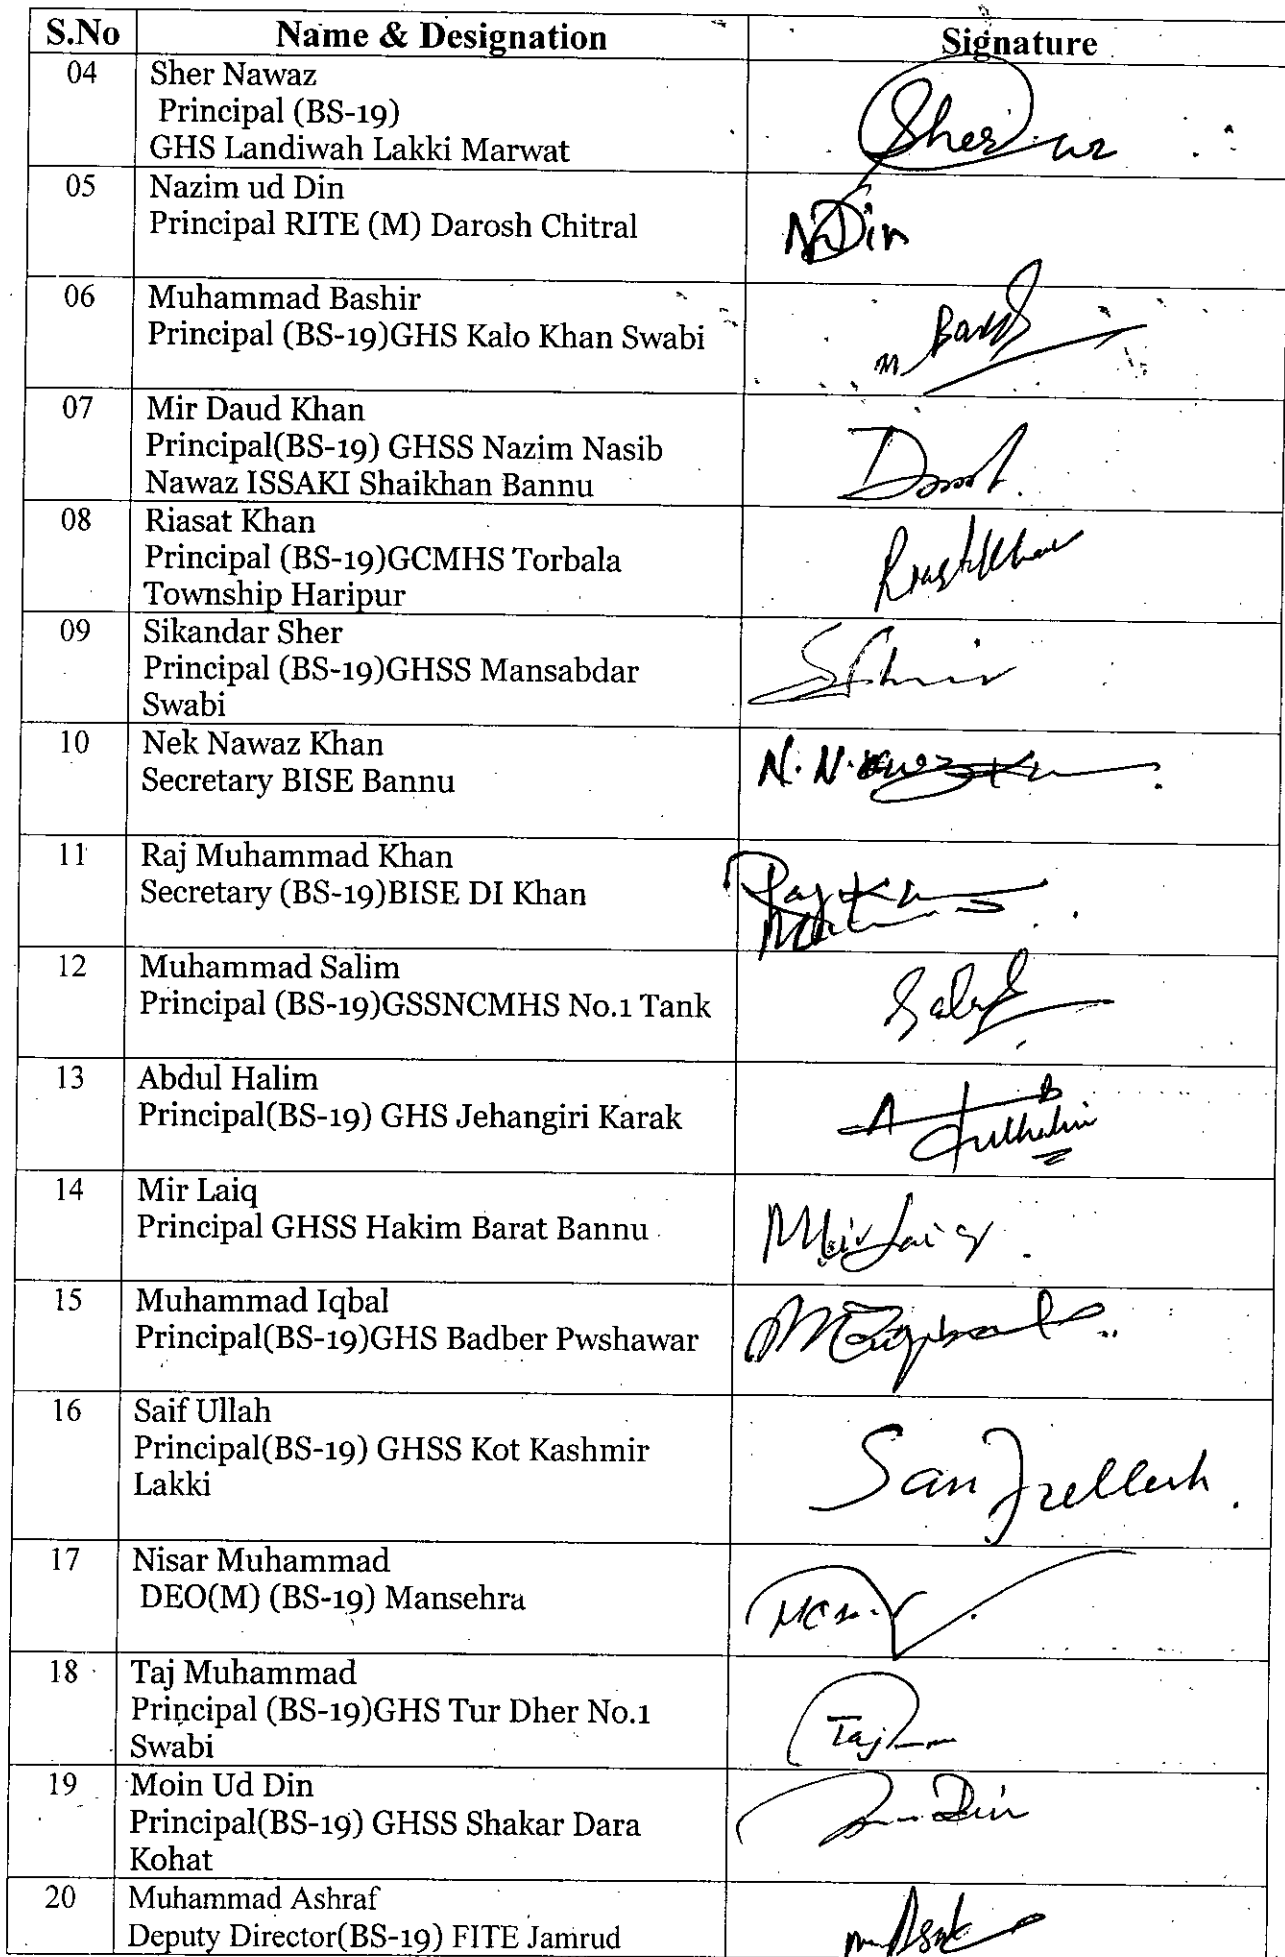 S.No Name & Designation Signature
04 Sher Nawaz
Principal (BS-19)
GHS Landiwah Lakki Marwat
Sher
05 Nazim ud Din
Principal RITE (M) Darosh Chitral
N Din
06 Muhammad Bashir
Principal (BS-19)GHS Kalo Khan Swabi
M
07 Mir Daud Khan
Principal(BS-19) GHSS Nazim Nasib
Nawaz ISSAKI Shaikhan Bannu
08 Riasat Khan
Principal (BS-19)GCMHS Torbala
Township Haripur
09 Sikandar Sher
Principal (BS-19)GHSS Mansabdar
Swabi
10 Nek Nawaz Khan
Secretary BISE Bannu
N. N.
11 Raj Muhammad Khan
Secretary (BS-19)BISE DI Khan
Raj
12 Muhammad Salim
Principal (BS-19)GSSNCMHS No.1 Tank
13 Abdul Halim
Principal(BS-19) GHS Jehangiri Karak
14 Mir Laiq
Principal GHSS Hakim Barat Bannu
Mir Laiq
15 Muhammad Iqbal
Principal(BS-19)GHS Badber Pwshawar
16 Saif Ullah
Principal(BS-19) GHSS Kot Kashmir
Lakki
17 Nisar Muhammad
DEO(M) (BS-19) Mansehra
18 Taj Muhammad
Principal (BS-19)GHS Tur Dher No.1
Swabi
Taj
19 Moin Ud Din
Principal(BS-19) GHSS Shakar Dara
Kohat
Din
20 Muhammad Ashraf
Deputy Director(BS-19) FITE Jamrud